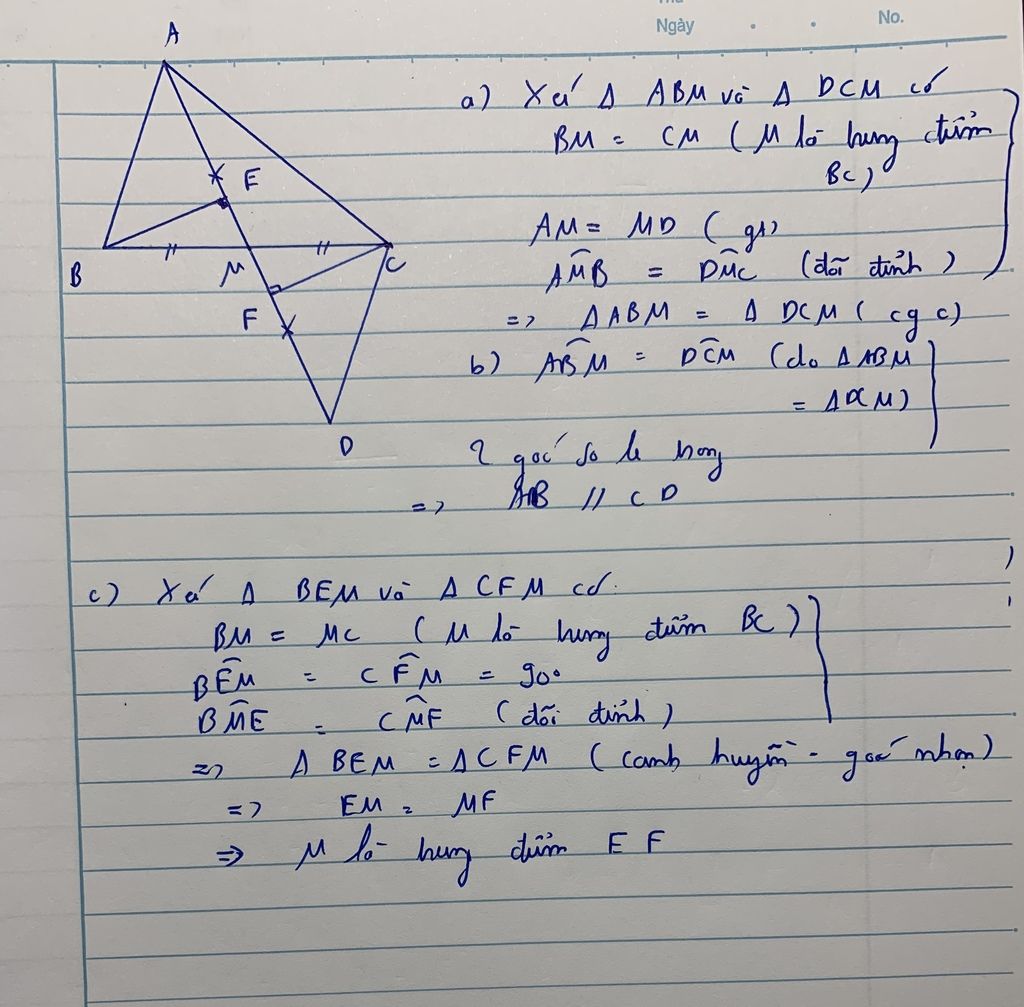 Ngày
No.
A
E
B
M
C
F
D
a) Xét Δ ABM và Δ DCM có
BM = CM ( M là trung điểm
BC)
AM = MD ( gt)
AM̂B = DM̂C (đối đỉnh )
=> Δ ABM = Δ DCM ( c g c)
b) AB̂M = DĈM (do Δ ABM
= ΔDCM)
2 góc so le trong
=> AB // CD
c) Xét Δ BEM và Δ CFM có.
BM = MC ( M là trung điểm BC )
BÊM = CF̂M = 90°
BM̂E = CM̂F (đối đỉnh )
=> Δ BEM = Δ CFM ( cạnh huyền - góc nhọn)
=> EM = MF
=> M là trung điểm E F